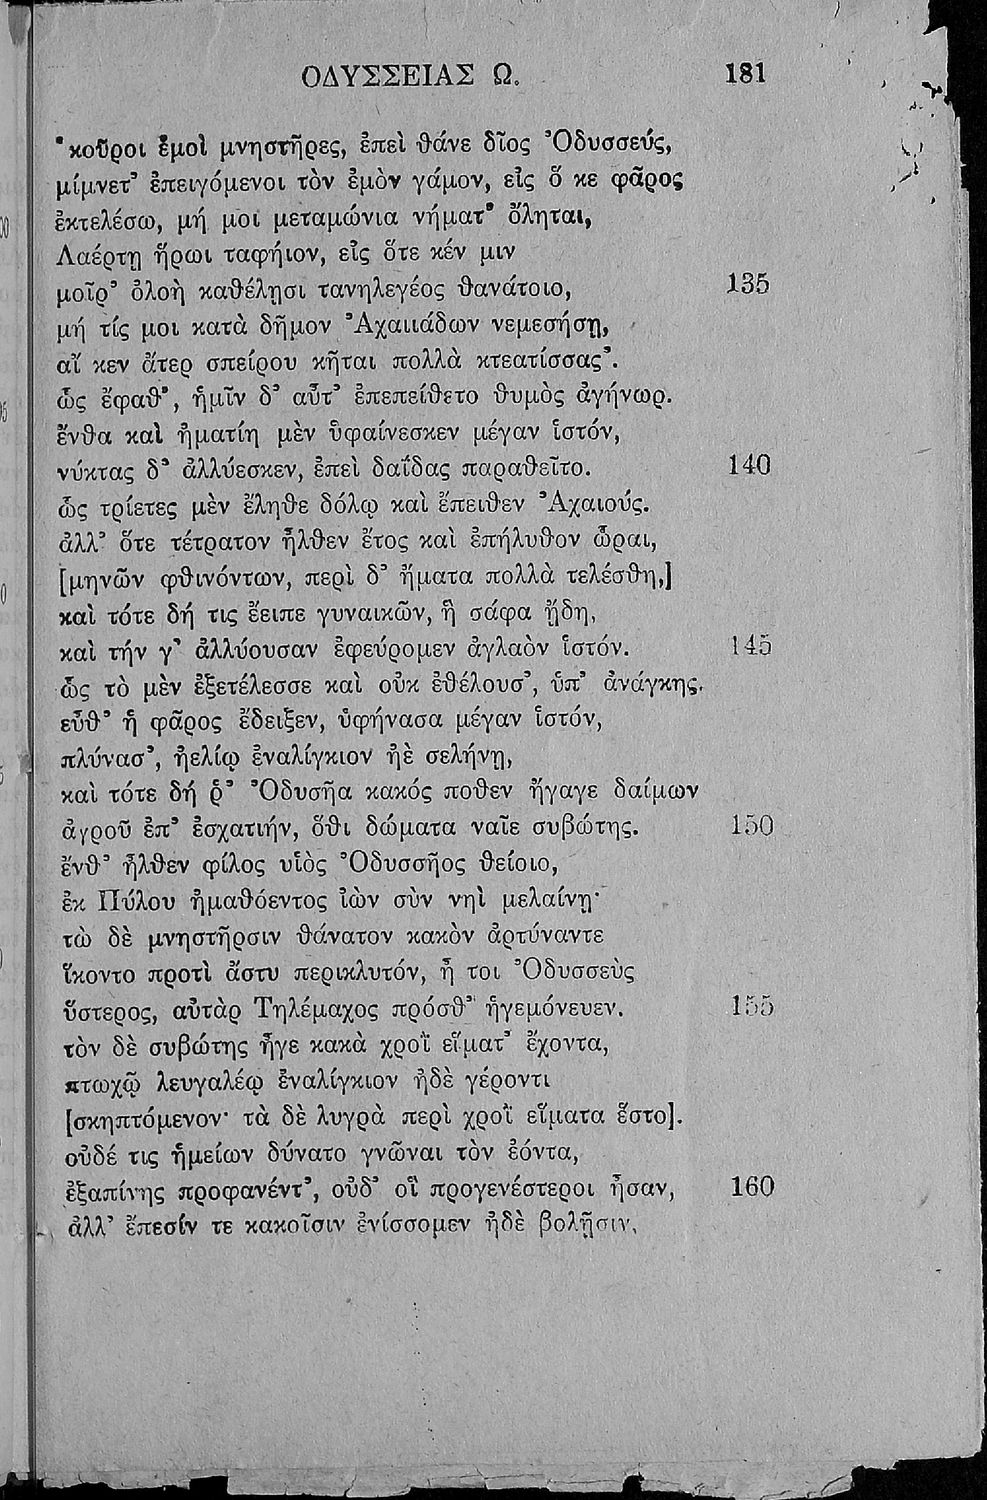 ΟΔΥΣΣΕΙΑΣ Ω. 181
‛κοῦροι ἐμοὶ μνηστῆρες, ἐπεὶ θάνε δῖος Ὀδυσσεύς,
μίμνετ᾽ ἐπειγόμενοι τὸν ἐμὸν γάμον, εἰς ὅ κε φᾶρος
ἐκτελέσω, μή μοι μεταμώνια νήματ᾽ ὄληται,
Λαέρτῃ ἥρωι ταφήιον, εἰς ὅτε κέν μιν
μοῖρ᾽ ὀλοὴ καθέλῃσι τανηλεγέος θανάτοιο, 135
μή τίς μοι κατὰ δῆμον Ἀχαιιάδων νεμεσήσῃ,
αἴ κεν ἄτερ σπείρου κῆται πολλὰ κτεατίσσας᾽.
ὣς ἔφαθ᾽, ἡμῖν δ᾽ αὖτ᾽ ἐπεπείθετο θυμὸς ἀγήνωρ.
ἔνθα καὶ ἠματίη μὲν ὑφαίνεσκεν μέγαν ἱστόν,
νύκτας δ᾽ ἀλλύεσκεν, ἐπεὶ δαΐδας παραθεῖτο. 140
ὣς τρίετες μὲν ἔληθε δόλῳ καὶ ἔπειθεν Ἀχαιούς.
ἀλλ᾽ ὅτε τέτρατον ἦλθεν ἔτος καὶ ἐπήλυθον ὧραι,
[μηνῶν φθινόντων, περὶ δ᾽ ἤματα πολλὰ τελέσθη,]
καὶ τότε δή τις ἔειπε γυναικῶν, ἣ σάφα ᾔδη,
καὶ τήν γ᾽ ἀλλύουσαν ἐφεύρομεν ἀγλαὸν ἱστόν. 145
ὣς τὸ μὲν ἐξετέλεσσε καὶ οὐκ ἐθέλουσ᾽, ὑπ᾽ ἀνάγκης.
εὖθ᾽ ἡ φᾶρος ἔδειξεν, ὑφήνασα μέγαν ἱστόν,
πλύνασ᾽, ἠελίῳ ἐναλίγκιον ἠὲ σελήνῃ,
καὶ τότε δή ῥ᾽ Ὀδυσῆα κακός ποθεν ἤγαγε δαίμων
ἀγροῦ ἐπ᾽ ἐσχατιήν, ὅθι δώματα ναῖε συβώτης. 150
ἔνθ᾽ ἦλθεν φίλος υἱὸς Ὀδυσσῆος θείοιο,
ἐκ Πύλου ἠμαθόεντος ἰὼν σὺν νηὶ μελαίνῃ·
τὼ δὲ μνηστῆρσιν θάνατον κακὸν ἀρτύναντε
ἵκοντο προτὶ ἄστυ περικλυτόν, ἦ τοι Ὀδυσσεὺς
ὕστερος, αὐτὰρ Τηλέμαχος πρόσθ᾽ ἡγεμόνευεν. 155
τὸν δὲ συβώτης ἦγε κακὰ χροῒ εἵματ᾽ ἔχοντα,
πτωχῷ λευγαλέῳ ἐναλίγκιον ἠδὲ γέροντι
[σκηπτόμενον· τὰ δὲ λυγρὰ περὶ χροῒ εἵματα ἕστο].
οὐδέ τις ἡμείων δύνατο γνῶναι τὸν ἐόντα,
ἐξαπίνης προφανέντ᾽, οὐδ᾽ οἳ προγενέστεροι ἦσαν, 160
ἀλλ᾽ ἔπεσίν τε κακοῖσιν ἐνίσσομεν ἠδὲ βολῇσιν,